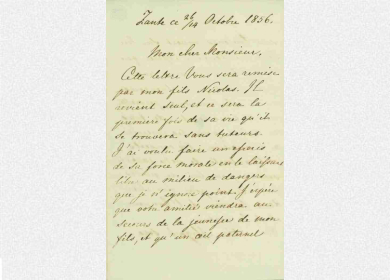 Zante ce 26/14 Octobre 1856.
Mon cher Monsieur,
Cette lettre Vous sera remise
par mon fils Nicolas. Il
revient seul, et ce sera la
première fois de sa vie qu'il
se trouvera sans tuteurs.
J'ai voulu faire un essai
de sa force morale en le laissant
libre au milieu de dangers
que je n'ignore point. J'espère
que votre amitié viendra au
secours de la jeunesse de mon
fils, et qu'un œil paternel